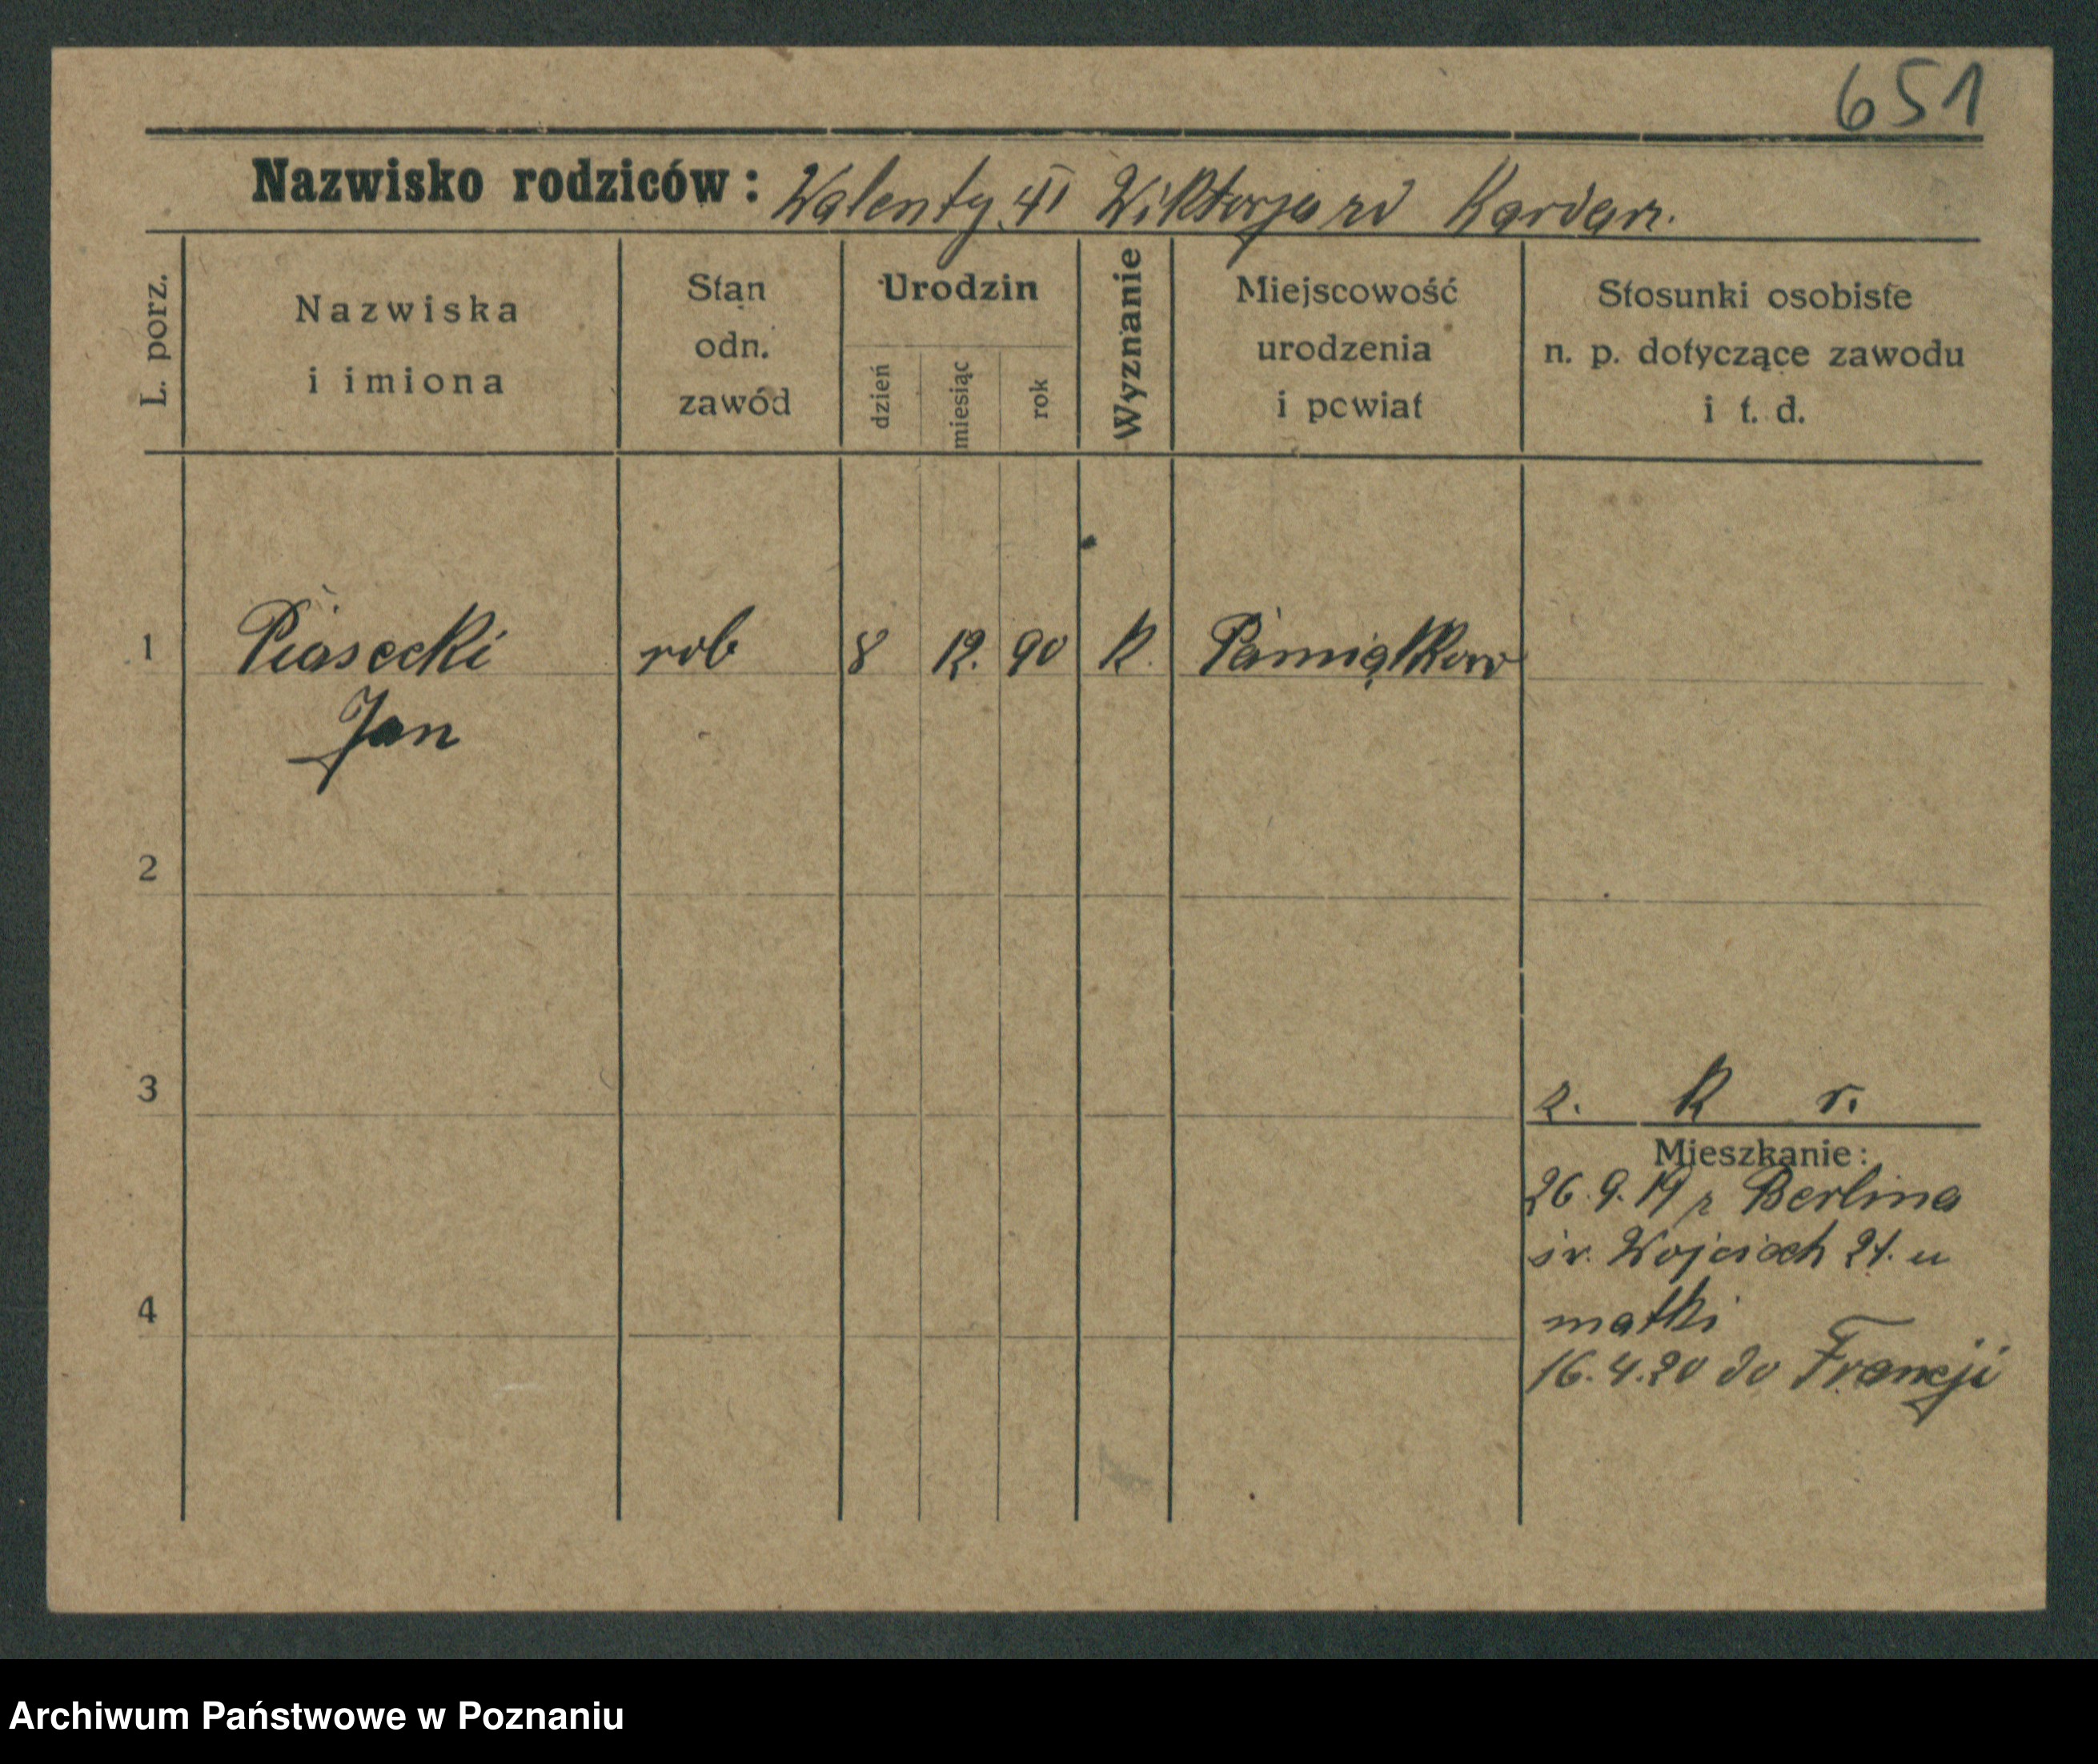 651
Nazwisko rodziców: Walenty Wiktorja
L. porz.
Nazwiska
i imiona
Stan
odn.
zawód
Urodzin
dzień
miesiąc
rok
Wyznanie
Miejscowość
urodzenia
i powiat
Stosunki osobiste
n. p. dotyczące zawodu
i t. d.
1 Piasecki rob 8 12. 90 K. Pamiątkowo
Jan
2
3
k r.
Mieszkanie:
26.9.19 z Berlina
św. Wojciech 21. u
4
matki
16.4.20 do Francji
Archiwum Państwowe w Poznaniu